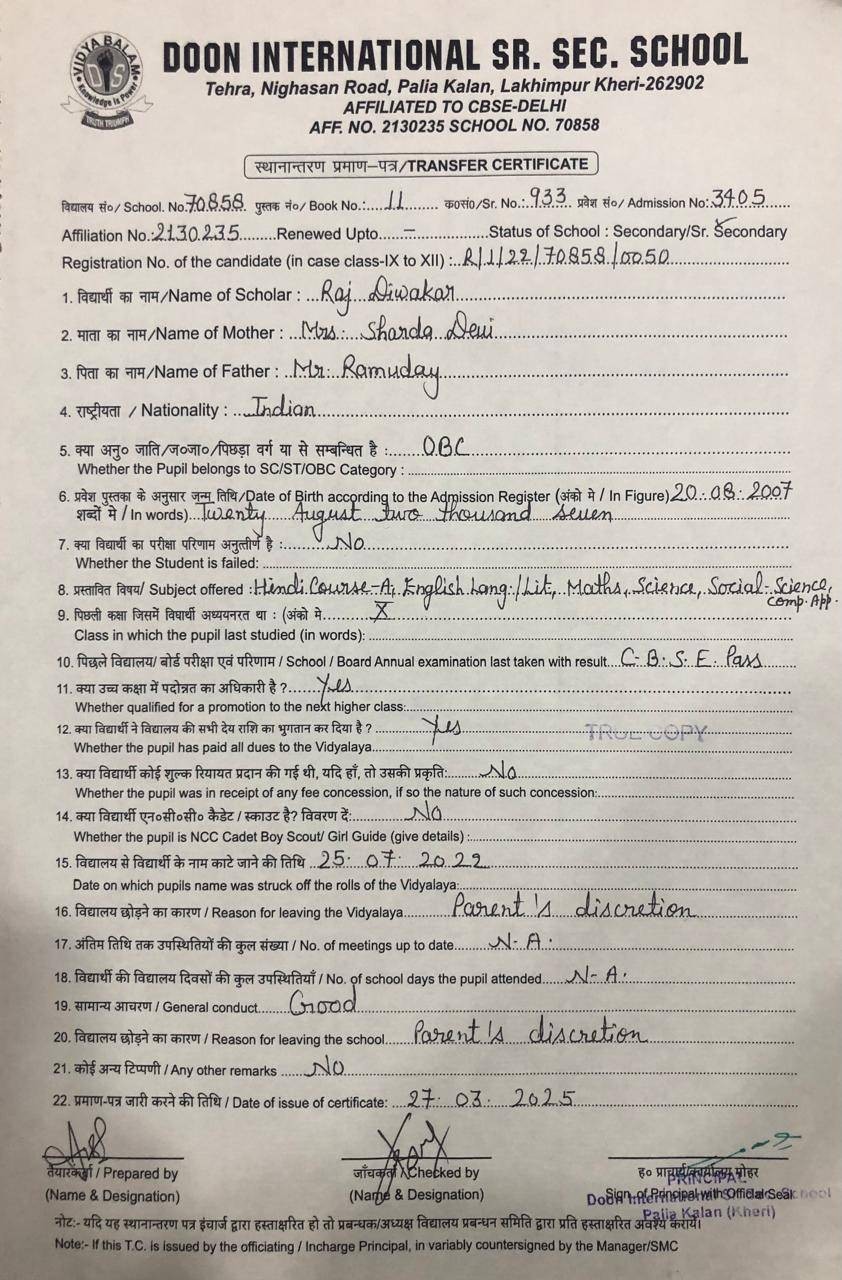 VIDYA BALAM
DIS
Knowledge is Power
TRUTH TRIUMPH
DOON INTERNATIONAL SR. SEC. SCHOOL
Tehra, Nighasan Road, Palia Kalan, Lakhimpur Kheri-262902
AFFILIATED TO CBSE-DELHI
AFF. NO. 2130235 SCHOOL NO. 70858
स्थानान्तरण प्रमाण-पत्र/TRANSFER CERTIFICATE
विद्यालय सं०/ School. No. 70858 पुस्तक नं०/ Book No.: 11 क०सं०/Sr. No.: 933 प्रवेश सं०/ Admission No: 3405
Affiliation No.: 2130235 Renewed Upto - Status of School : Secondary/Sr. Secondary
Registration No. of the candidate (in case class-IX to XII) : R/1/22/70858/0050
1. विद्यार्थी का नाम/Name of Scholar : Raj Diwakar
2. माता का नाम/Name of Mother : Mrs. Sharda Devi
3. पिता का नाम/Name of Father : Mr. Ramuday
4. राष्ट्रीयता / Nationality : Indian
5. क्या अनु० जाति/ज०जा०/पिछड़ा वर्ग या से सम्बन्धित है : OBC
Whether the Pupil belongs to SC/ST/OBC Category :
6. प्रवेश पुस्तका के अनुसार जन्म तिथि/Date of Birth according to the Admission Register (अंको मे / In Figure) 20.08.2007
शब्दों मे / In words) Twenty August two thousand seven
7. क्या विद्यार्थी का परीक्षा परिणाम अनुत्तीर्ण है : No
Whether the Student is failed:
8. प्रस्तावित विषय/ Subject offered : Hindi Course-A, English Lang./Lit, Maths, Science, Social-Science,
Comp. App.
9. पिछली कक्षा जिसमें विद्यार्थी अध्ययनरत था : (अंको मे X
Class in which the pupil last studied (in words):
10. पिछले विद्यालय/ बोर्ड परीक्षा एवं परिणाम / School / Board Annual examination last taken with result C.B.S.E. Pass
11. क्या उच्च कक्षा में पदोन्नत का अधिकारी है ? Yes
Whether qualified for a promotion to the next higher class:
12. क्या विद्यार्थी ने विद्यालय की सभी देय राशि का भुगतान कर दिया है ? Yes
TRUE COPY
Whether the pupil has paid all dues to the Vidyalaya
13. क्या विद्यार्थी कोई शुल्क रियायत प्रदान की गई थी, यदि हाँ, तो उसकी प्रकृति: No
Whether the pupil was in receipt of any fee concession, if so the nature of such concession:
14. क्या विद्यार्थी एन०सी०सी० कैडेट / स्काउट है? विवरण दें: No
Whether the pupil is NCC Cadet Boy Scout/ Girl Guide (give details) :
15. विद्यालय से विद्यार्थी के नाम काटे जाने की तिथि 25.07.2022
Date on which pupils name was struck off the rolls of the Vidyalaya:
16. विद्यालय छोड़ने का कारण / Reason for leaving the Vidyalaya Parent's discretion
17. अंतिम तिथि तक उपस्थितियों की कुल संख्या / No. of meetings up to date N.A.
18. विद्यार्थी की विद्यालय दिवसों की कुल उपस्थितियाँ / No. of school days the pupil attended N.A.
19. सामान्य आचरण / General conduct Good
20. विद्यालय छोड़ने का कारण / Reason for leaving the school Parent's discretion
21. कोई अन्य टिप्पणी / Any other remarks No
22. प्रमाण-पत्र जारी करने की तिथि / Date of issue of certificate: 27.03.2025
तैयारकर्ता / Prepared by जाँचकर्ता / Checked by ह० प्राचार्य/कार्यालय मोहर
PRINCIPAL
(Name & Designation) (Name & Designation) Sign. of Principal with Official Seal
Doon International School
Palia Kalan (Kheri)
नोट:- यदि यह स्थानान्तरण पत्र इंचार्ज द्वारा हस्ताक्षरित हो तो प्रबन्धक/अध्यक्ष विद्यालय प्रबन्धन समिति द्वारा प्रति हस्ताक्षरित अवश्य करायें।
Note:- If this T.C. is issued by the officiating / Incharge Principal, in variably countersigned by the Manager/SMC